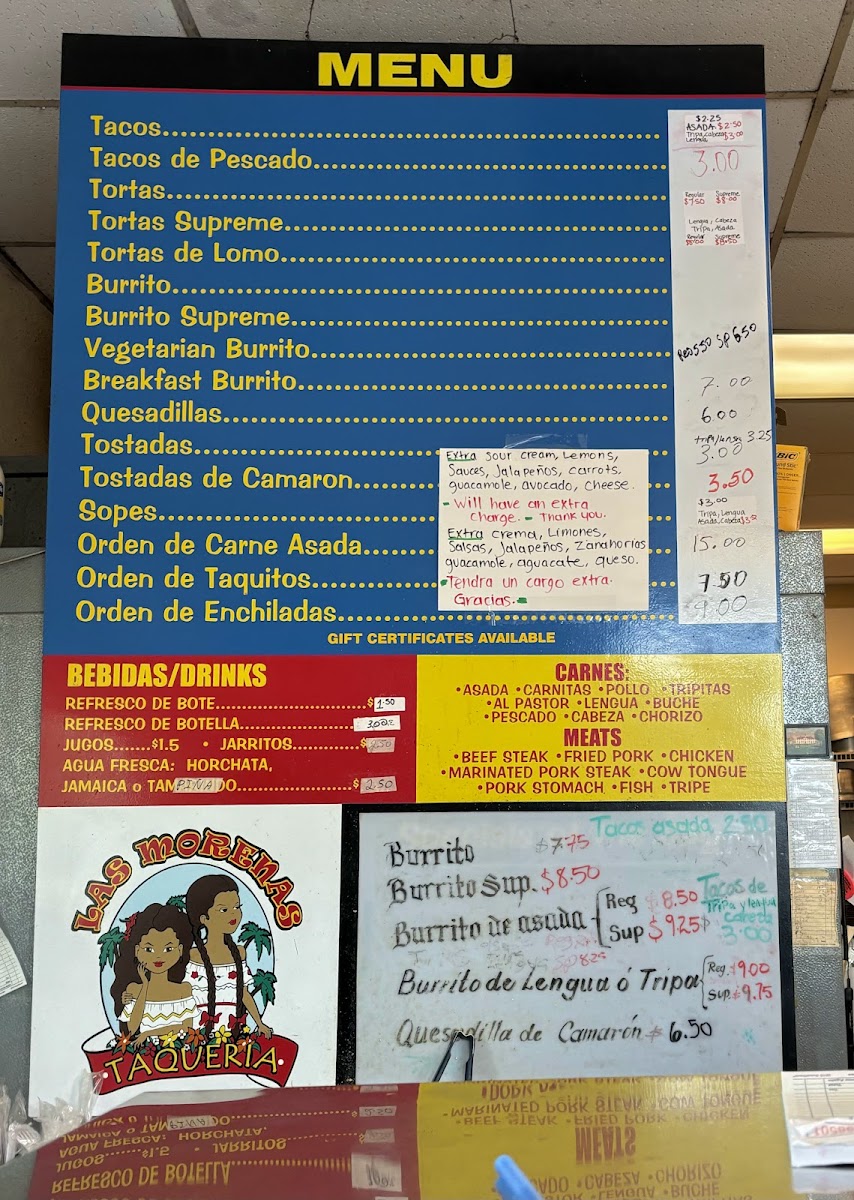 MENU
Tacos
$2.25
ASADA $2.50
Tripa, Cabeza $3.00
Lengua
Tacos de Pescado
3.00
Tortas
Regular Supreme
$7.50 $8.00
Tortas Supreme
Lengua, Cabeza
Tripa, Asada
Regular Supreme
$8.00 $8.50
Tortas de Lomo
Burrito
Burrito Supreme
Vegetarian Burrito
Reg 5.50 SP 6.50
Breakfast Burrito
7.00
Quesadillas
6.00
Tostadas
3.25
3.00
Tostadas de Camaron
3.50
Sopes
$3.00
Tripa, Lengua
Asada, Cabeza $3.50
Orden de Carne Asada
15.00
Orden de Taquitos
7.50
Orden de Enchiladas
9.00
Extra sour cream, Lemons,
Sauces, Jalapeños, carrots,
guacamole, avocado, cheese.
- Will have an extra
charge. - Thank you.
Extra crema, Limones,
Salsas, Jalapeños, Zanahorias
guacamole, aguacate, queso.
Tendra un cargo extra.
Gracias.
GIFT CERTIFICATES AVAILABLE
BEBIDAS/DRINKS
REFRESCO DE BOTE $1.50
REFRESCO DE BOTELLA
JUGOS.......$1.5 • JARRITOS $2.50
AGUA FRESCA: HORCHATA,
JAMAICA o TAM PIÑA DO $2.50
CARNES:
•ASADA •CARNITAS •POLLO •TRIPITAS
•AL PASTOR •LENGUA •BUCHE
•PESCADO •CABEZA •CHORIZO
MEATS
•BEEF STEAK •FRIED PORK •CHICKEN
•MARINATED PORK STEAK •COW TONGUE
•PORK STOMACH •FISH •TRIPE
LAS MORENAS
TAQUERIA
Tacos asada 2.50
Burrito $7.75
Burrito Sup. $8.50
Burrito de asada Reg $8.50
Sup $9.25
Tacos de
Tripa y lengua
cabeza
3.00
Burrito de Lengua ó Tripa Reg. $9.00
Sup. $9.75
Quesadilla de Camarón $6.50
BIC